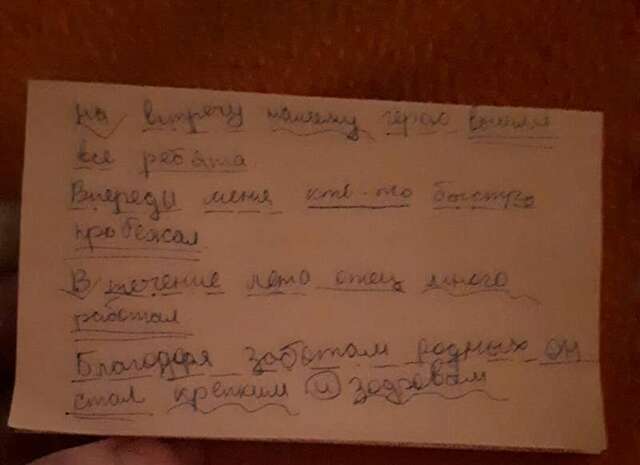 На встречу нашему герою вышли
все ребята
Впереди меня кто-то быстро
пробежал
В течение лета отец много
работал
Благодаря заботам родных он
стал крепким и здоровым